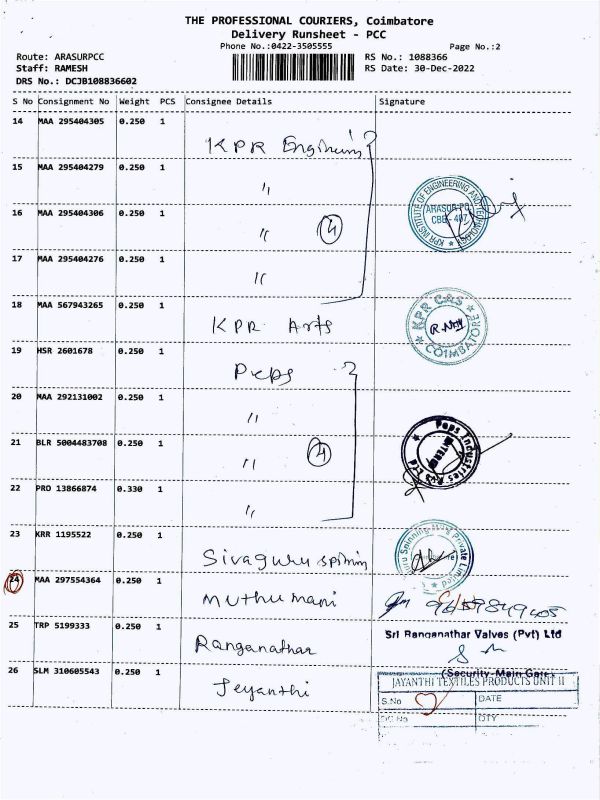 THE PROFESSIONAL COURIERS, Coimbatore
Delivery Runsheet - PCC
Phone No.:0422-3505555 Page No.:2
Route: ARASURPCC RS No.: 1088366
Staff: RAMESH RS Date: 30-Dec-2022
DRS No.: DCJB108836602
S No Consignment No Weight PCS Consignee Details Signature
14 MAA 295404305 0.250 1 KPR Engineering
15 MAA 295404279 0.250 1 "
16 MAA 295404306 0.250 1 " 4
17 MAA 295404276 0.250 1 "
KPR INSTITUTE OF ENGINEERING AND TECHNOLOGY
ARASUR-PO
CBE - 407
18 MAA 567943265 0.250 1 KPR Arts
KPR CAS
COIMBATORE
19 HSR 2601678 0.250 1 Peps
20 MAA 292131002 0.250 1 "
21 BLR 5004483708 0.250 1 " 4
22 PRO 13866874 0.330 1 "
Peps Industries Pvt Ltd
23 KRR 1195522 0.250 1 Sivaguru spinnin
Spinning Mills Private Limited
24 MAA 297554364 0.250 1 Muthu mani
25 TRP 5199333 0.250 1 Ranganathar
Sri Ranganathar Valves (Pvt) Ltd
(Security-Main Gate)
26 SLM 310605543 0.250 1 Jeyanthi
JAYANTHI TEXTILES PRODUCTS UNIT II
S.No DATE
DC No QTY